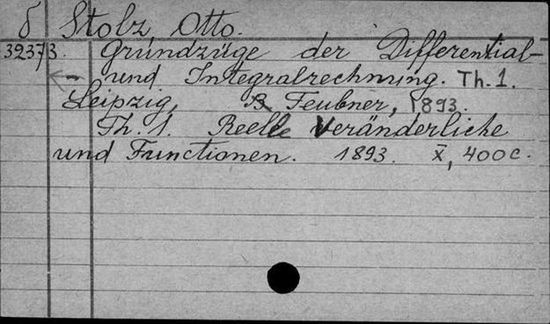 δ Stolz, Otto.
32373. Grundzüge der Differential-
und Integralrechnung. Th. 1.
Leipzig, B. Teubner, 1893.
Th. 1. Reelle Veränderliche
und Functionen. 1893. X, 400 c.